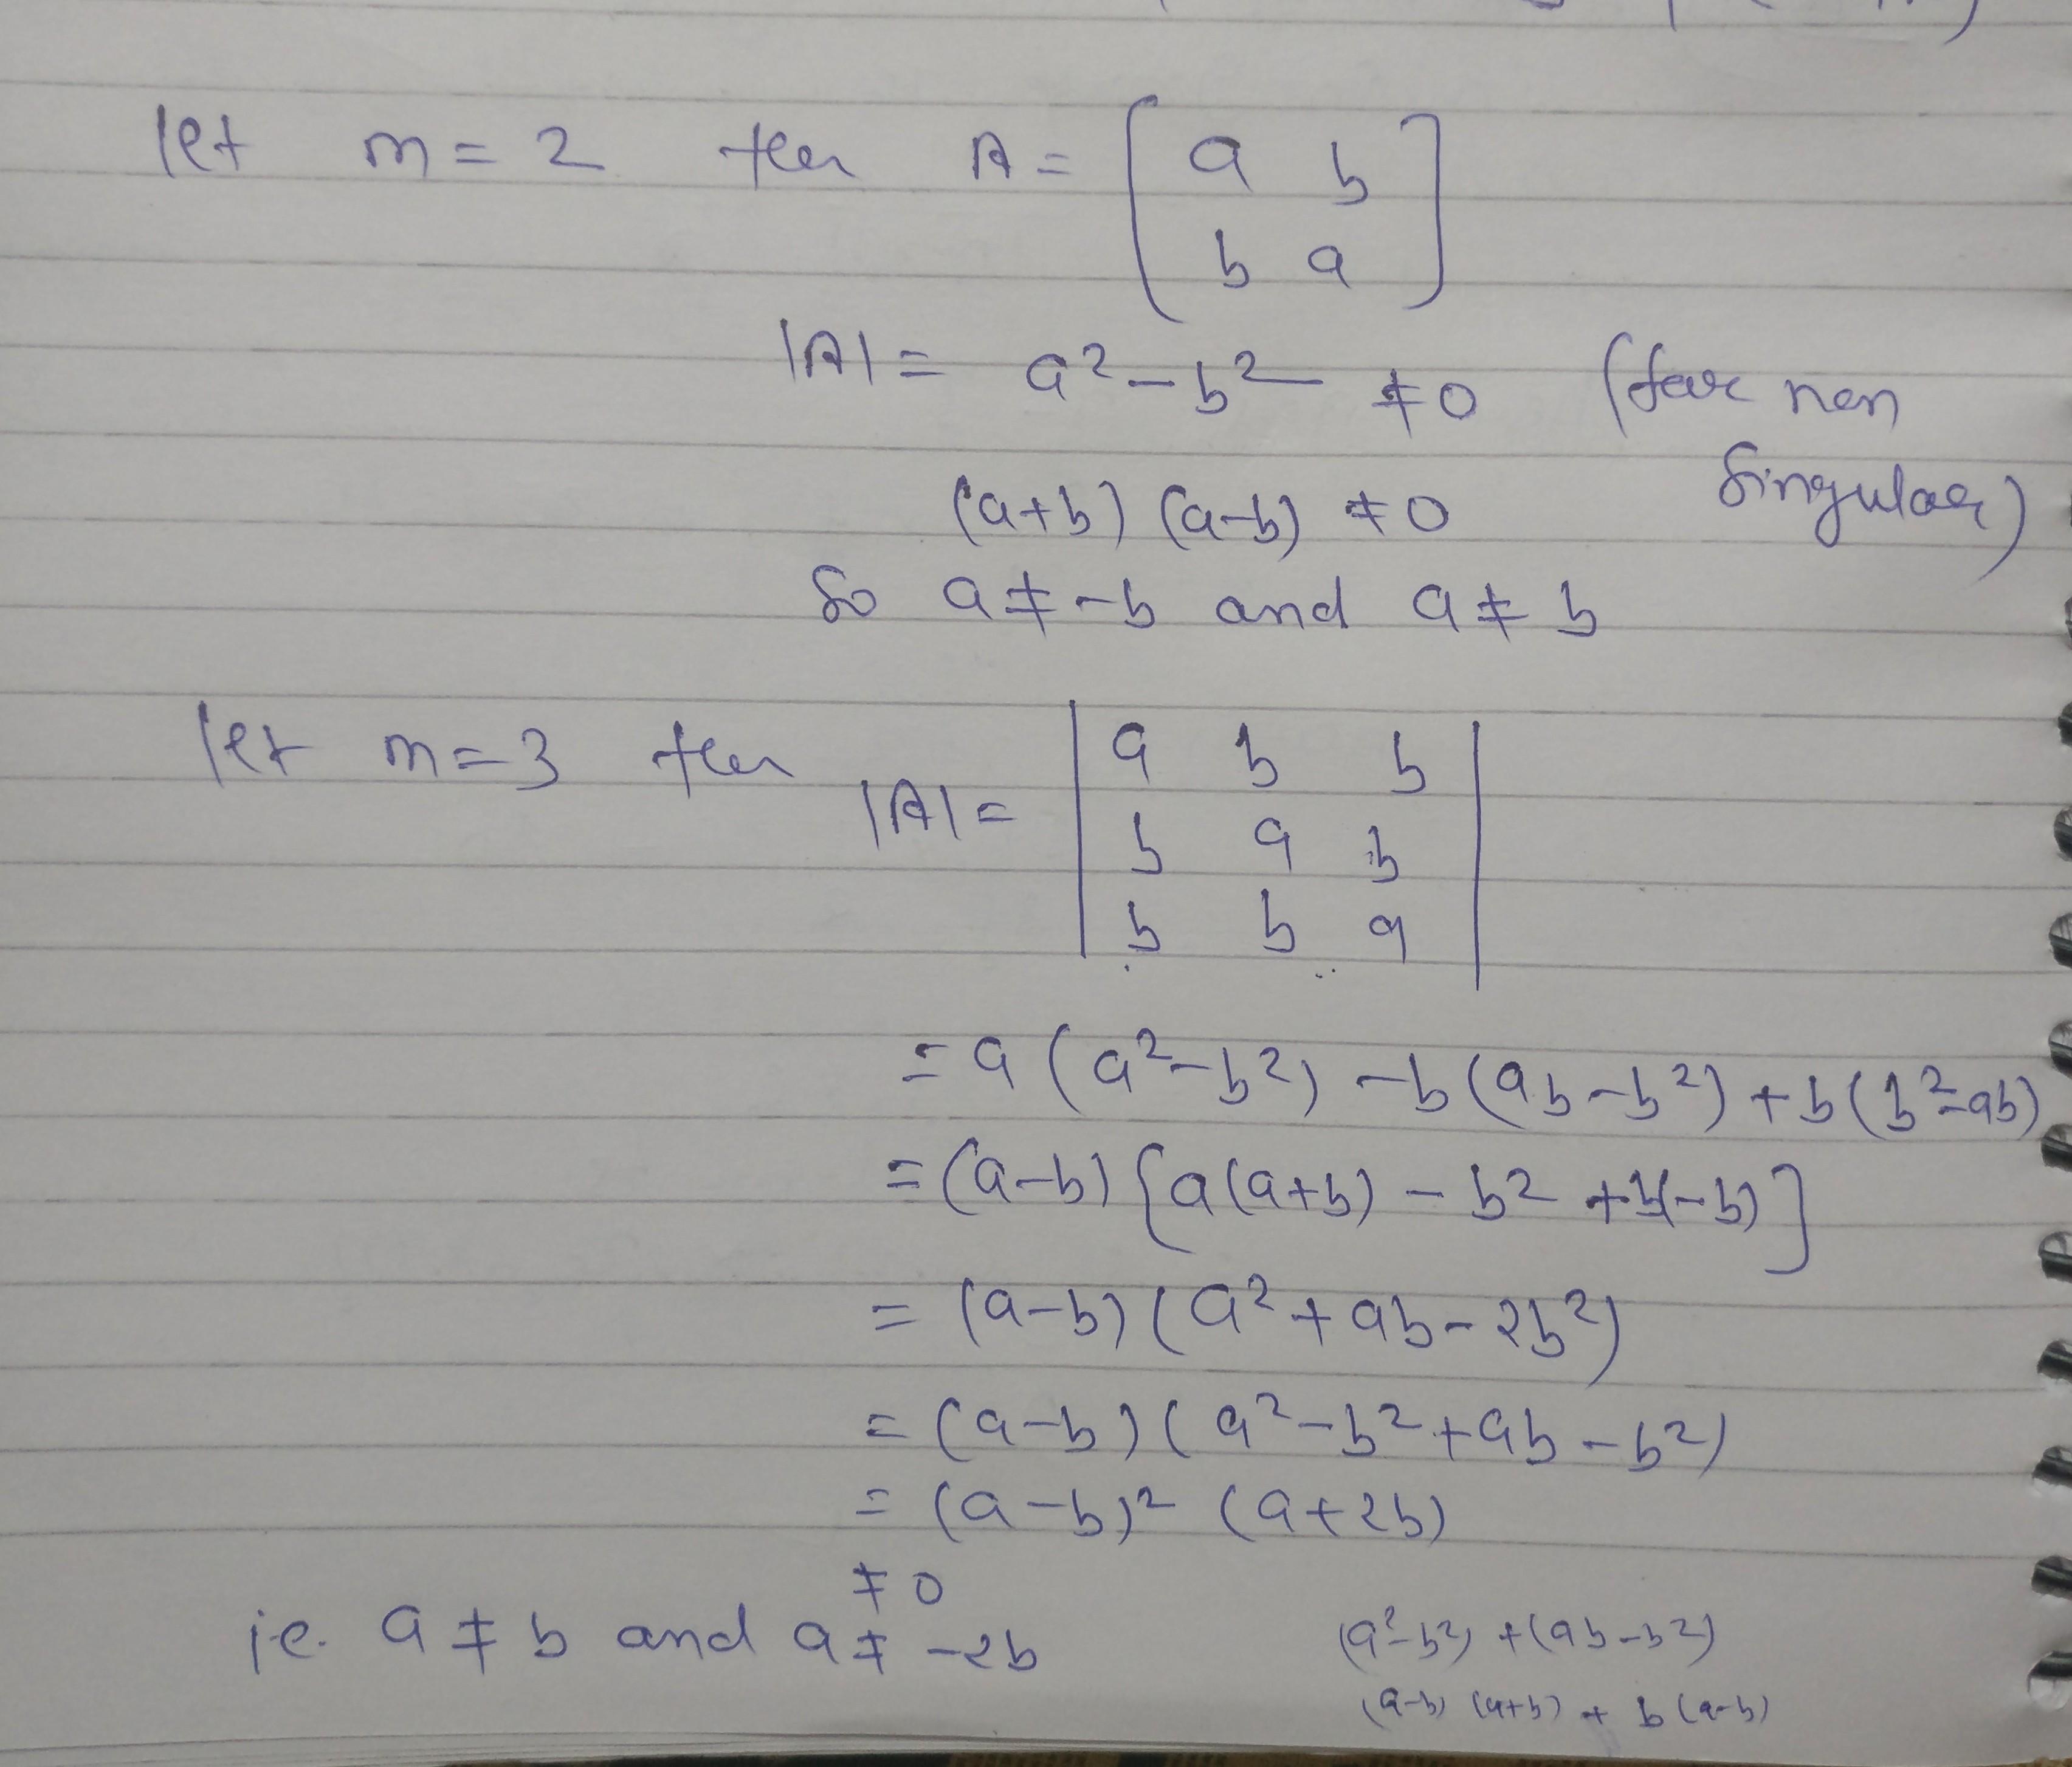 let m = 2 then A = [ a b
b a ]
|A| = a² - b² ≠ 0 (for non
singular)
(a+b) (a-b) ≠ 0
So a ≠ -b and a ≠ b
let m = 3 then |A| = | a b b |
| b a b |
| b b a |
= a (a² - b²) - b (ab - b²) + b (b² - ab)
= (a-b) { a(a+b) - b² + b(-b) }
= (a-b) (a² + ab - 2b²)
= (a-b) (a² - b² + ab - b²)
= (a-b)² (a+2b)
≠ 0
i.e. a ≠ b and a ≠ -2b
(a²-b²) + (ab-b²)
(a-b) (a+b) + b (a-b)